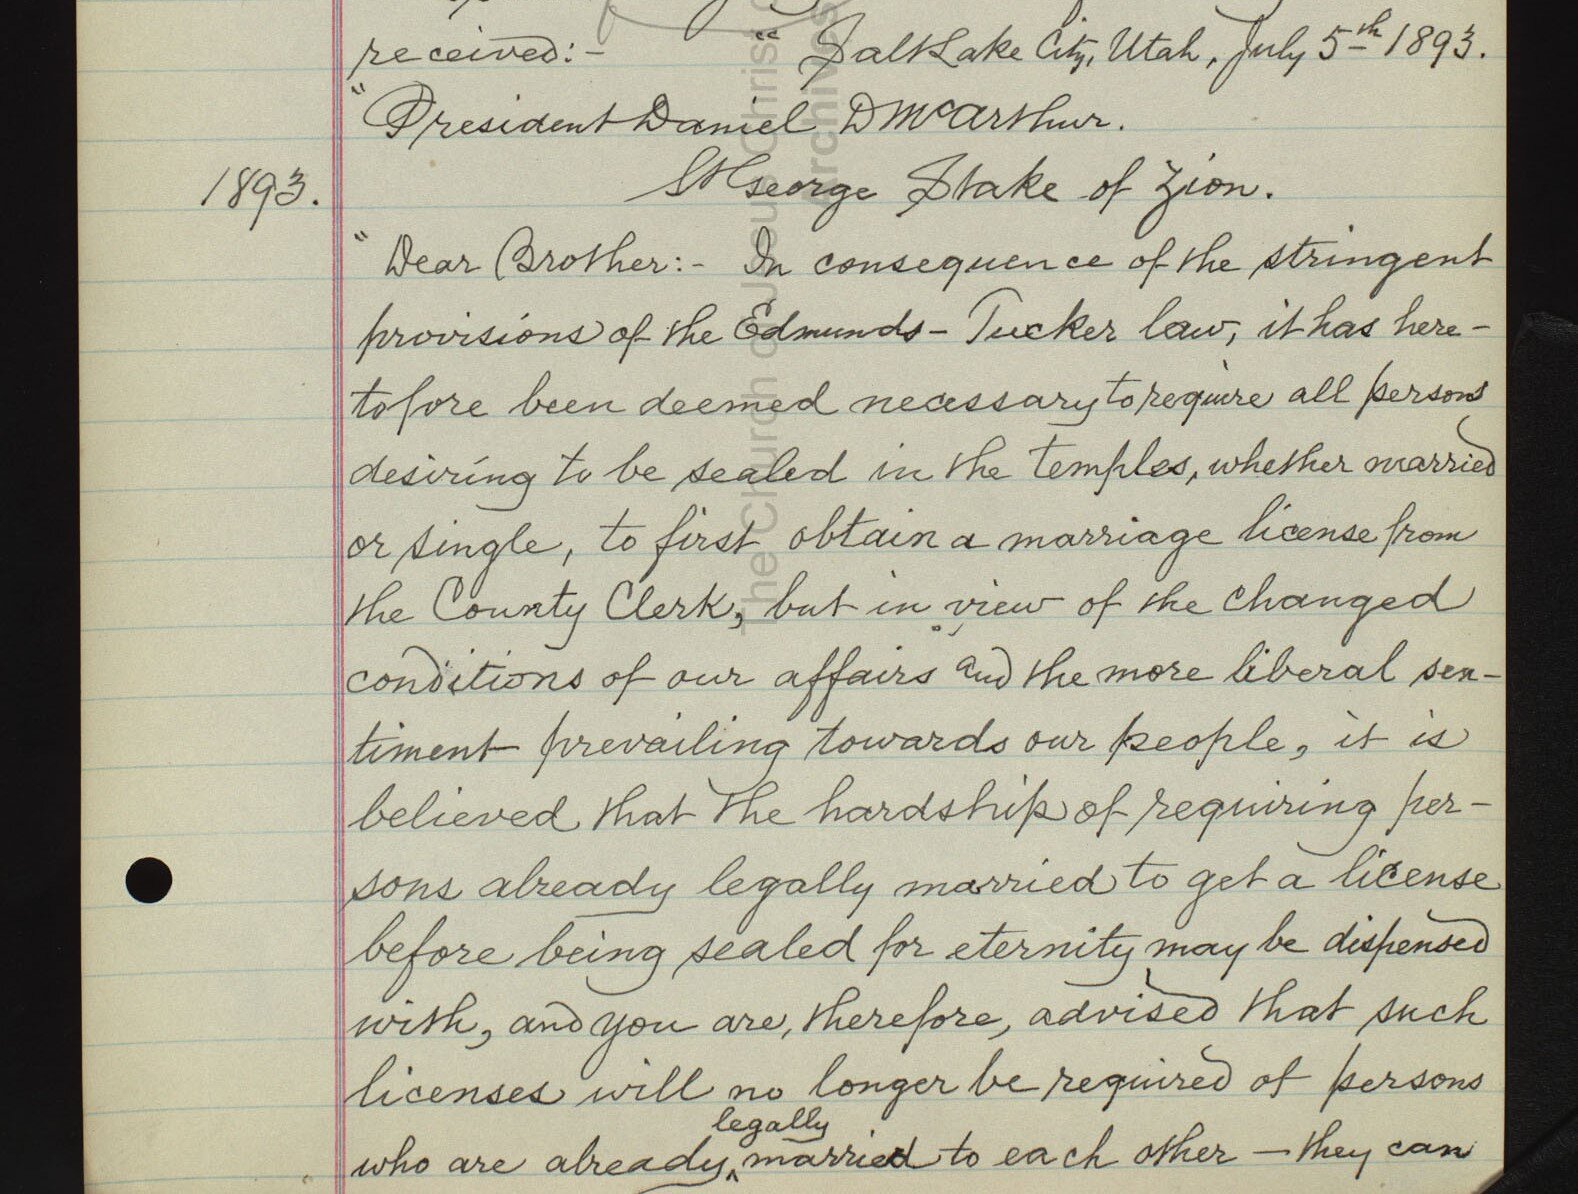 received:- "Salt Lake City, Utah, July 5th 1893.
"President Daniel D McArthur.
1893.
St George Stake of Zion.
"Dear Brother:- In consequence of the stringent
provisions of the Edmunds-Tucker law, it has here-
tofore been deemed necessary to require all persons
desiring to be sealed in the temples, whether married
or single, to first obtain a marriage license from
the County Clerk, but in view of the changed
conditions of our affairs and the more liberal sen-
timent prevailing towards our people, it is
believed that the hardship of requiring per-
sons already legally married to get a license
before being sealed for eternity may be dispensed
with, and you are, therefore, advised that such
licenses will no longer be required of persons
legally
who are already ^ married to each other — they can
The Church of Jesus Christ
Archives